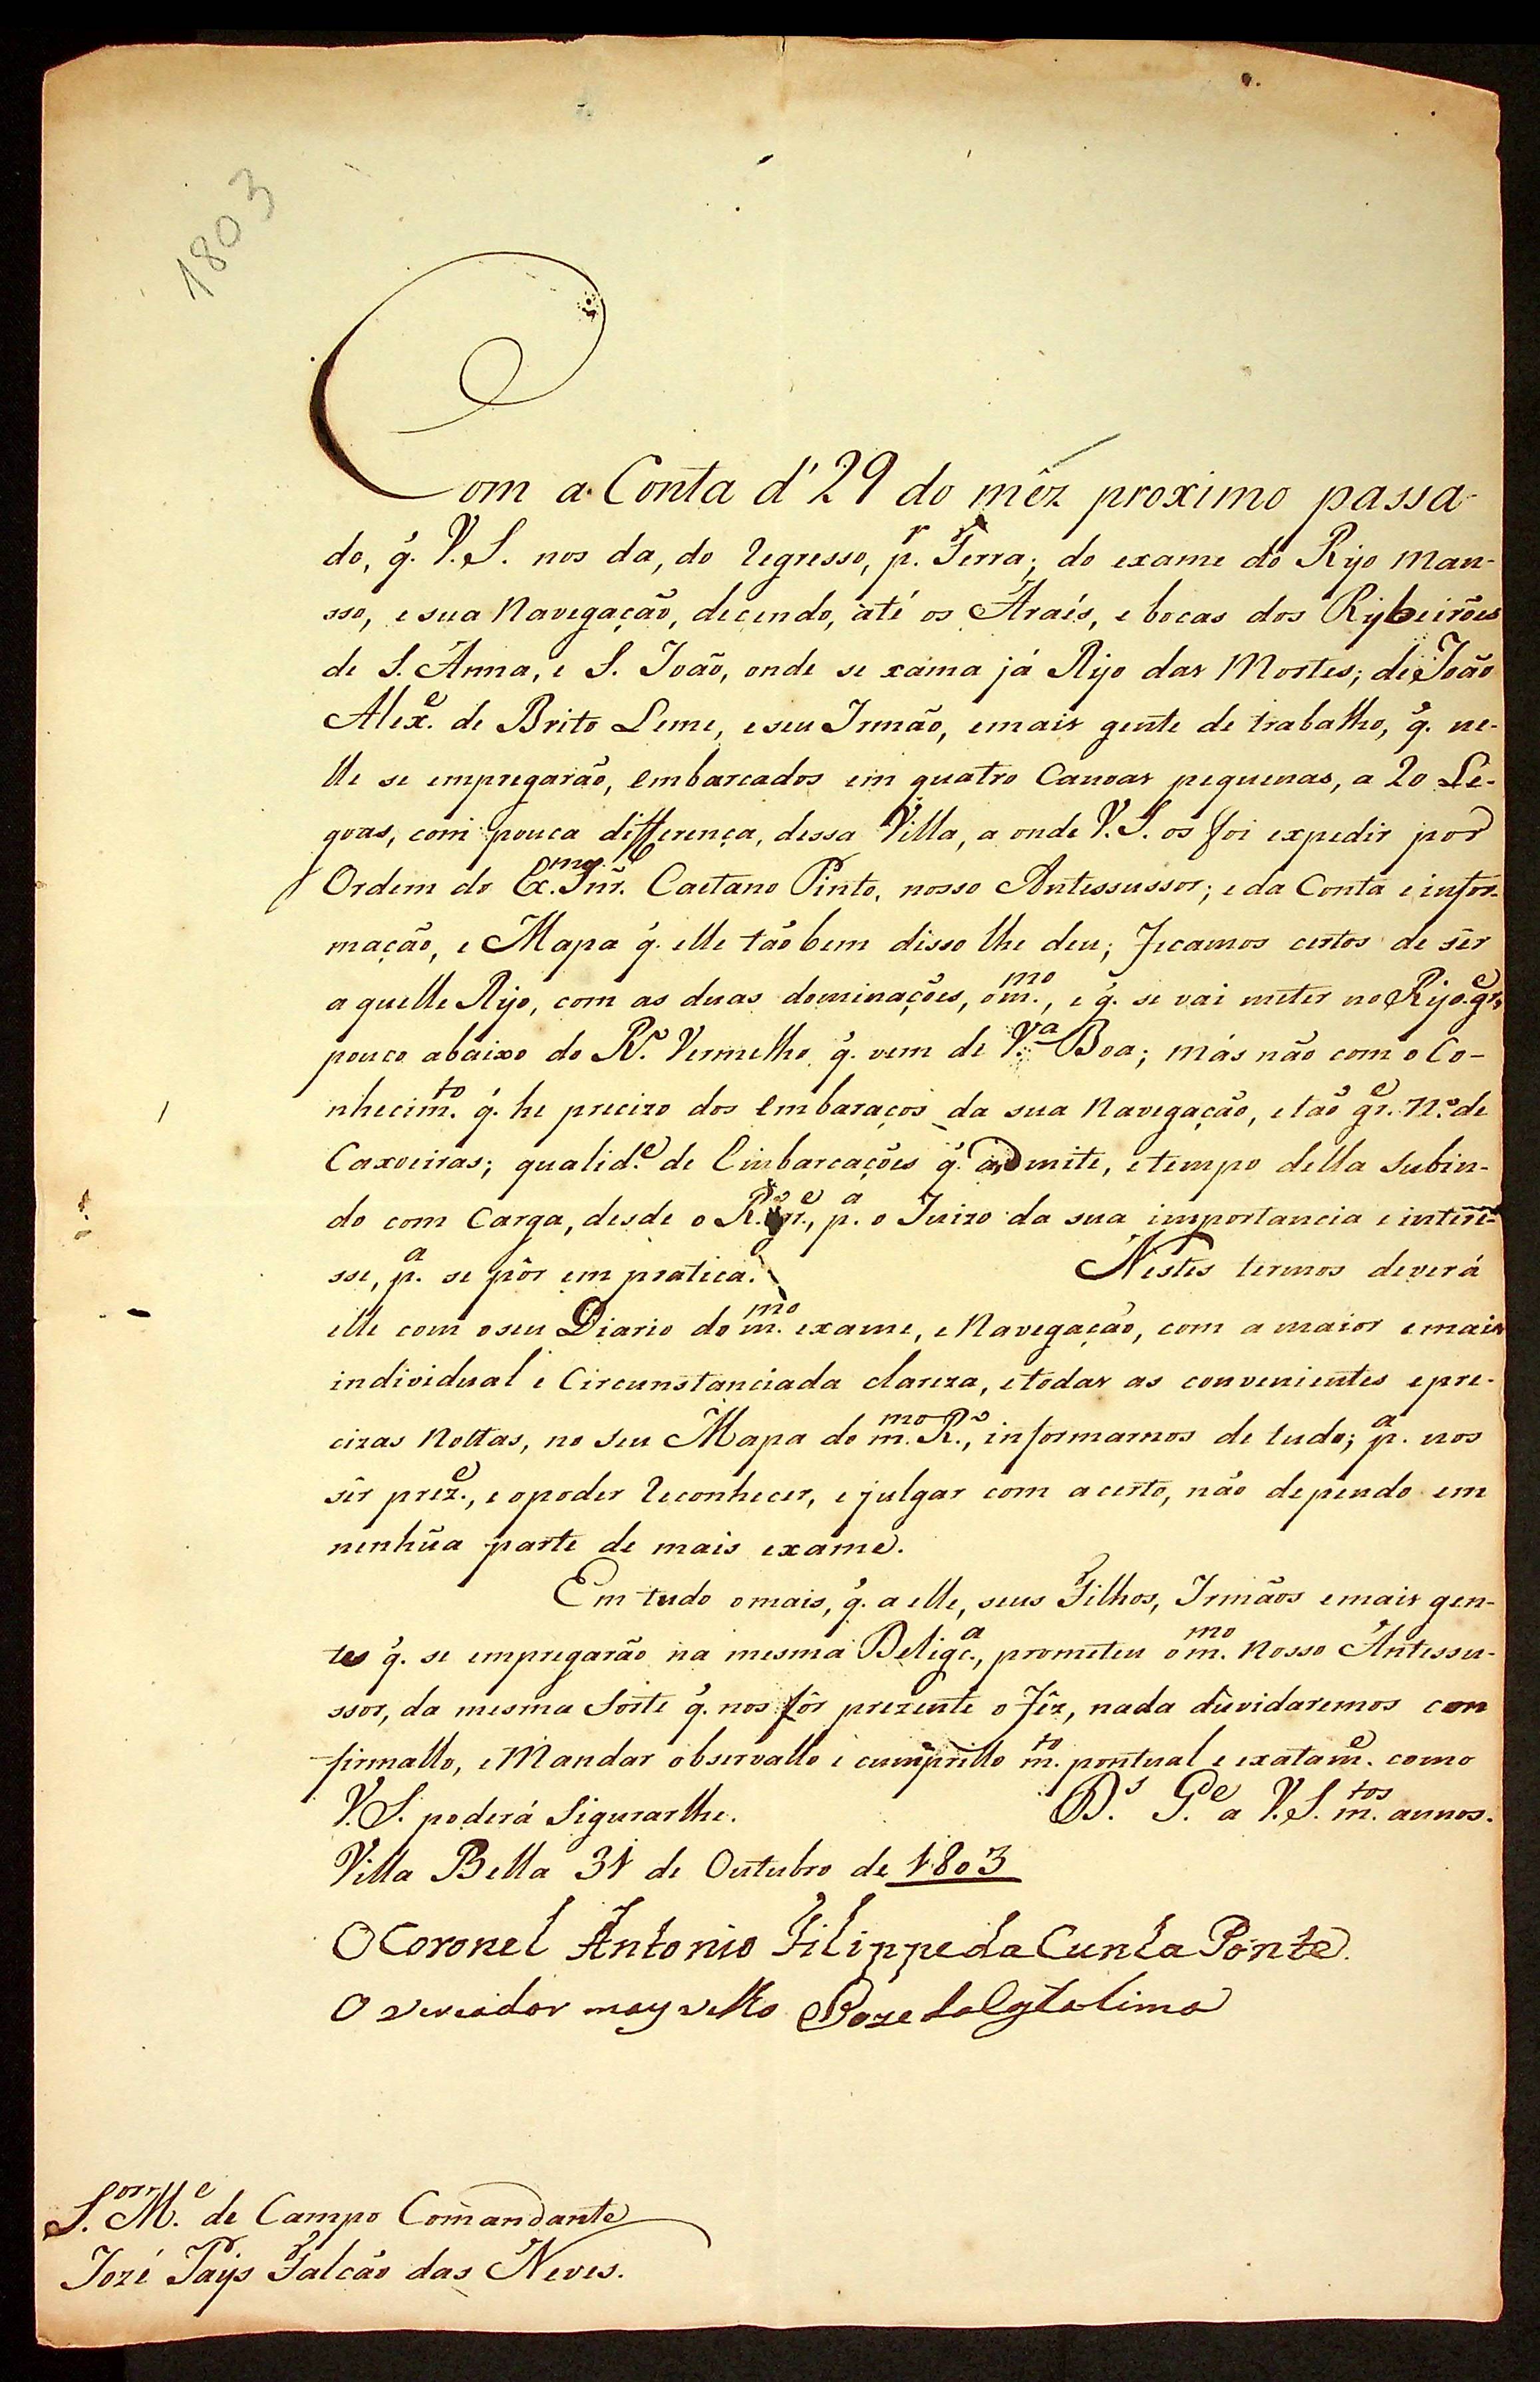 1803
Com a Conta d' 29 do mêz proximo passa-
do, q̃. V. S. nos da, do regresso, p.r Terra; do exame do Rijo Man-
sso, e sua Navegação, decendo, até os Áraés, e bocas dos Rybeirões
de S. Anna, e S. João, onde se xama já Rijo das Mortes; de João
Alex.e de Brito Leme, e seu Irmão, emais gente de trabalho, q̃. ne-
lle se empregarão, embarcados em quatro Canoas pequenas, a 20 Le-
goas, com pouca differença, dessa Villa, a onde V. S. os foi expedir por
Ordem do Ex.mo Snr̃. Caetano Pinto, nosso Antessussor; e da Conta e infor-
mação, e Mapa q̃. elle tão bem disso lhe deu; ficamos certos de sêr
aquelle Rijo, com as duas dominações, o m.mo, e q̃. se vai meter no Rijo gr.e
pouco abaixo do R.o Vermelho q̃. vem de V.a Boa; más não com o Co-
nhecim.to q̃. he precizo dos embaraços da sua Navegação, e tão gr.e N.o de
Caxoeiras; qualid.e de Embarcações q̃. admite, e tempo della subin-
do com Carga, desde o R.o gr.e, p.a o Juizo da sua importancia e intere-
sse, p.a se pôr em pratica. Nestes termos deverá
elle com o seu Diario do m.mo exame, e Navegação, com a maior e mais
individual e Circunstanciada clareza, e todas as convenientes e pre-
cizas Nottas, no seu Mapa do m.mo R.o, informarnos de tudo; p.a nos
sêr prez.e, e o poder reconhecer, e julgar com acerto, não dependo em
nenhũa parte de mais exame.
Em tudo omais, q̃. a elle, seus Filhos, Irmãos emais gen-
tes q̃. se empregarão na mesma Deligc.a, prometeu o m.mo Nosso Ántessu-
ssor, da mesma Sorte q̃. nos fôr prezente o fêz, nada duvidaremos con
firmallo, e Mandar observallo e cumprillo m.to pontual e exatam.e como
V. S. poderá Sigurarlhe. D.s G.de a V. S. m.tos annos.
Villa Bella 31 de Outubro de 1803
O Coronel Antonio Filippe da Cunha Ponte.
O vereador mays velho Joze da Costa Lima
S.or M.e de Campo Comandante
Jozé Pays Falcão das Neves.